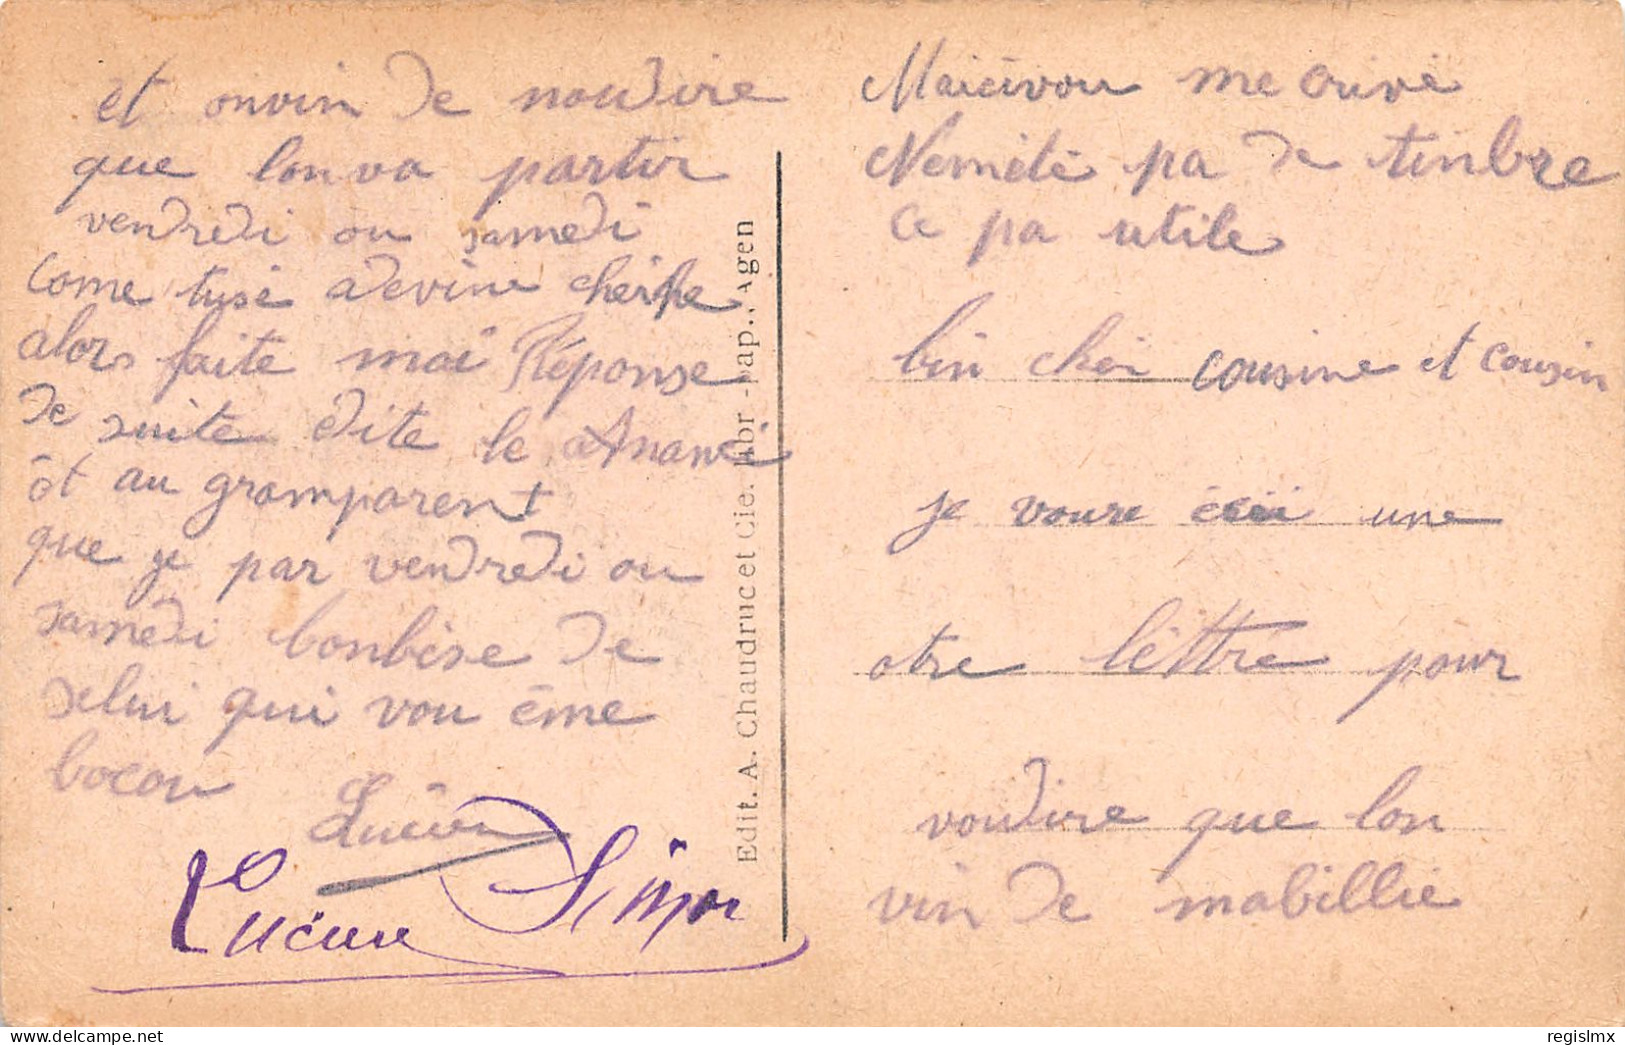 Maicivou me crive
Neméte pa de tinbre
ce pa utile
bin cher cousine et cousin
je voure écrii une
otre lettre pour
voudire que lon
vin de mabillie
et onvin de noudire
que lonva partir
vendredi ou samedi
come tusé adevine
alors faite moi Réponse
de suite dite le
et au gramparent
que je par vendredi ou
samedi bonbése de
selui qui vou éme
bocou Lucien
Lucien Simon
Edit. A. Chaudruc et Cie. libr.-pap., Agen
regislmx